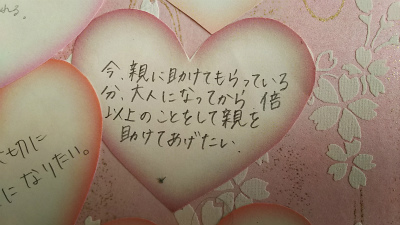 れる。
今、親に助けてもらっている
分、大人になってから、倍
以上のことをして親を
助けてあげたい。
切に
になりたい。